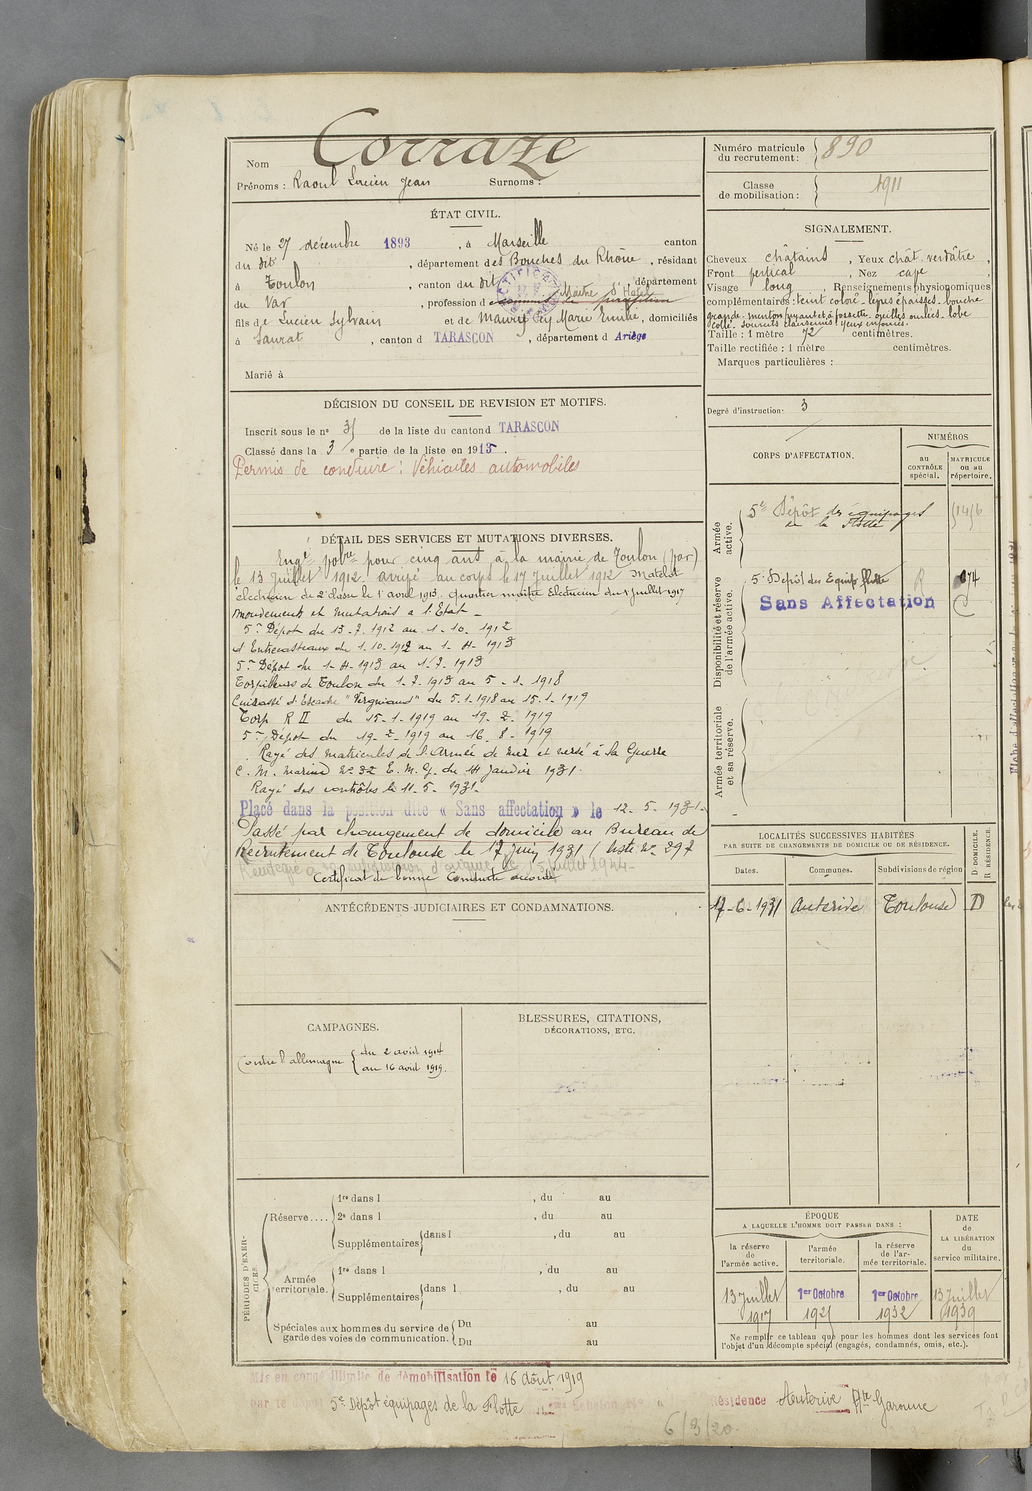 Nom Corraze
Prénoms : Raoul Lucien Jean Surnoms :
Numéro matricule du recrutement : 890
Classe de mobilisation : 1911
ÉTAT CIVIL.
Né le 27 décembre 1893, à Marseille canton
du dit, département des Bouches du Rhône, résidant
à Toulon, canton du dit, département
du Var, profession de Maître d'Hotel
fils de Lucien Sylvain et de Marie Emilie, domiciliés
à Saurat, canton d TARASCON, département d Ariège
Marié à
SIGNALEMENT.
Cheveux châtains, Yeux chât. verdâtre,
Front vertical, Nez cave
Visage long, Renseignements physionomiques
complémentaires : teint coloré - lèvres épaisses - bouche
grande - menton fuyant et à fossette - oreilles ourlées - lobe
collé - sourcils clairsemés yeux enfoncés.
Taille : 1 mètre 72 centimètres.
Taille rectifiée : 1 mètre centimètres.
Marques particulières :
Degré d'instruction : 3
DÉCISION DU CONSEIL DE REVISION ET MOTIFS.
Inscrit sous le n° 31 de la liste du canton d TARASCON
Classé dans la 3e partie de la liste en 1913.
Permis de conduire : Véhicules automobiles
DÉTAIL DES SERVICES ET MUTATIONS DIVERSES.
Engé volre pour cinq ans à la mairie de Toulon (var)
le 13 Juillet 1912 arrivé au corps le 17 Juillet 1912 Matelot
électricien de 2e classe le 1er avril 1913. Quartier maître Electricien du 1 juillet 1917
Mouvements et Mutations à l'Etat -
5me Dépôt du 13-7-1912 au 1-10-1912
d'Entrecasteaux du 1-10-1912 au 1-4-1913
5me Dépôt du 1-4-1913 au 1-7-1913
Torpilleurs de Toulon du 1-7-1913 au 5-1-1918
Cuirassé d'Escadre "Vergniaud" du 5-1-1918 au 15-1-1919
Torp R II du 15-1-1919 au 19-2-1919
5me Dépôt du 19-2-1919 au 16-8-1919
Rayé des matricules de l'Armée de mer et versé à la Guerre
C. M. marine N° 32 E. M. G. du 14 Janvier 1931.
Rayé des contrôles le 11-5-1931.
Placé dans la position dite « Sans affectation » le 12-5-1931.
Passé par changement de domicile au Bureau de
Recrutement de Toulouse le 17 juin 1931 (liste N° 297
Certificat de bonne conduite accordé
ANTÉCÉDENTS JUDICIAIRES ET CONDAMNATIONS.
CAMPAGNES.
Contre l'allemagne { du 2 août 1914
au 16 août 1919.
BLESSURES, CITATIONS,
DÉCORATIONS, ETC.
PÉRIODES D'EXERCICES.
Réserve.... 1re dans l , du au
2e dans l , du au
Supplémentaires dans l , du au
Armée territoriale. 1re dans l , du au
Supplémentaires dans l , du au
Spéciales aux hommes du service de Du au
garde des voies de communication. Du au
CORPS D'AFFECTATION.
NUMÉROS
au CONTRÔLE spécial.
MATRICULE ou au répertoire.
Armée active.
5e Dépôt des équipages
de la flotte 1416
Disponibilité et réserve de l'armée active.
5e Dépôt des Equip flotte R 874
Sans Affectation
Armée territoriale et sa réserve.
LOCALITÉS SUCCESSIVES HABITÉES
PAR SUITE DE CHANGEMENTS DE DOMICILE OU DE RÉSIDENCE.
D. DOMICILE. R. RÉSIDENCE.
Dates. Communes. Subdivisions de région
17-6-1931 Auterive Toulouse D
ÉPOQUE
A LAQUELLE L'HOMME DOIT PASSER DANS :
la réserve de l'armée active.
l'armée territoriale.
la réserve de l'armée territoriale.
DATE de LA LIBÉRATION du service militaire.
13 Juillet 1917
1er Octobre 1921
1er Octobre 1932
13 Juillet 1939
Ne remplir ce tableau que pour les hommes dont les services font
l'objet d'un décompte spécial (engagés, condamnés, omis, etc.).
Mis en congé illimité de démobilisation le 16 août 1919
par le dépôt 5e Dépôt équipages de la Flotte
Résidence Auterive Hte Garonne
6/3/20